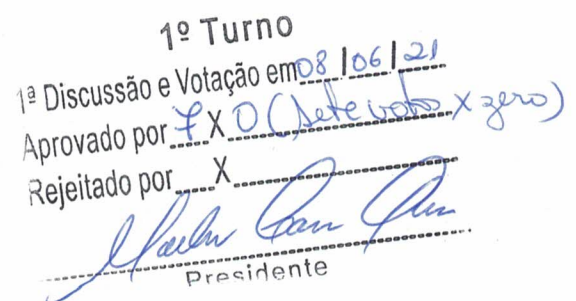 1º Turno
1ª Discussão e Votação em 08/06/21
Aprovado por 7 X 0 (sete votos x zero)
Rejeitado por X
Presidente